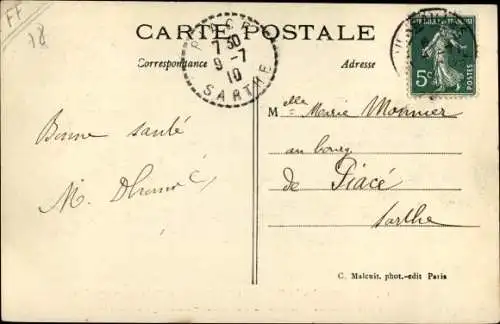 FF
78
CARTE POSTALE
Correspondance
Adresse
PIACÉ
7 30
9-7
10
SARTHE
POSTES
5c
Bonne santé
Melle Marie Monnier
au bourg
de Piacé
Sarthe
C. Malcuit, phot.-edit Paris